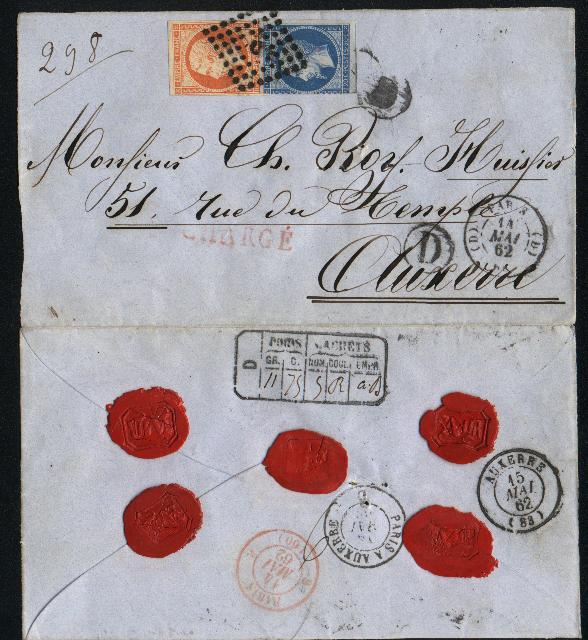 298
Monsieur Ch. Roy. Huissier
51, rue du Temple
CHARGÉ
D
PARIS
(D) (D)
14
MAI
62
Auxerre
D
POIDS CACHETS
GR. C. NOM. COUL. EMPR.
11 75 5 R
AUXERRE
15
MAI
62
(88)
PARIS A AUXERRE
PARIS
14
MAI
62
(60)